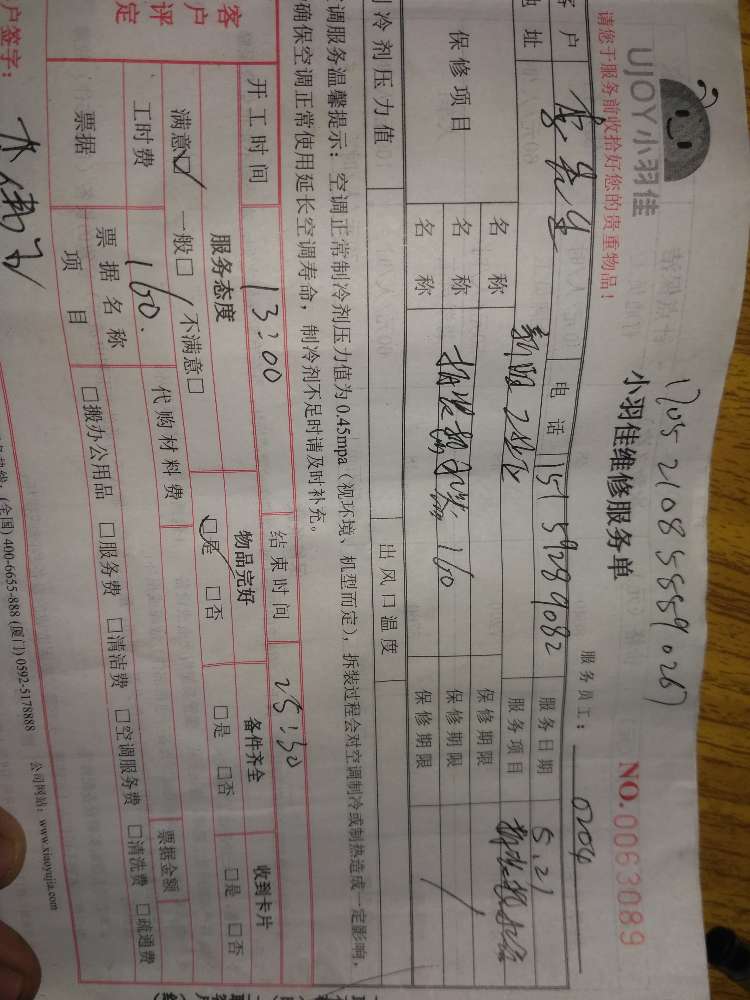 UJOY小羽佳
17052108588902 67
小羽佳维修服务单
NO.0063089
请您于服务前收拾好您的贵重物品！
服务员工： 0204
客 户 李先生 电 话 15159289082 服务日期 5.21
地 址 服务项目
保修项目 名 称 保修期限
名 称 160 保修期限
名 称 保修期限
制冷剂压力值 出风口温度
调服务温馨提示：空调正常制冷剂压力值为0.45mpa（视环境、机型而定），拆装过程会对空调制冷或制热造成一定影响，
确保空调正常使用延长空调寿命，制冷剂不足时请及时补充。
开工时间 13:00 结束时间 15:30
客户评定 服务态度 物品完好 备件齐全 收到卡片
满意☑ 一般□ 不满意□ ☑是 □否 □是 □否 □是 □否
工时费 160. 代购材料费 票据金额
票据 票据名称 □搬办公用品 □服务费 □清洁费 □空调服务费 □清洗费 □疏通费
项 目
户签字：
(全国) 400-6655-888 (厦门) 0592-5178888 公司网站：www.xiaoyujia.com